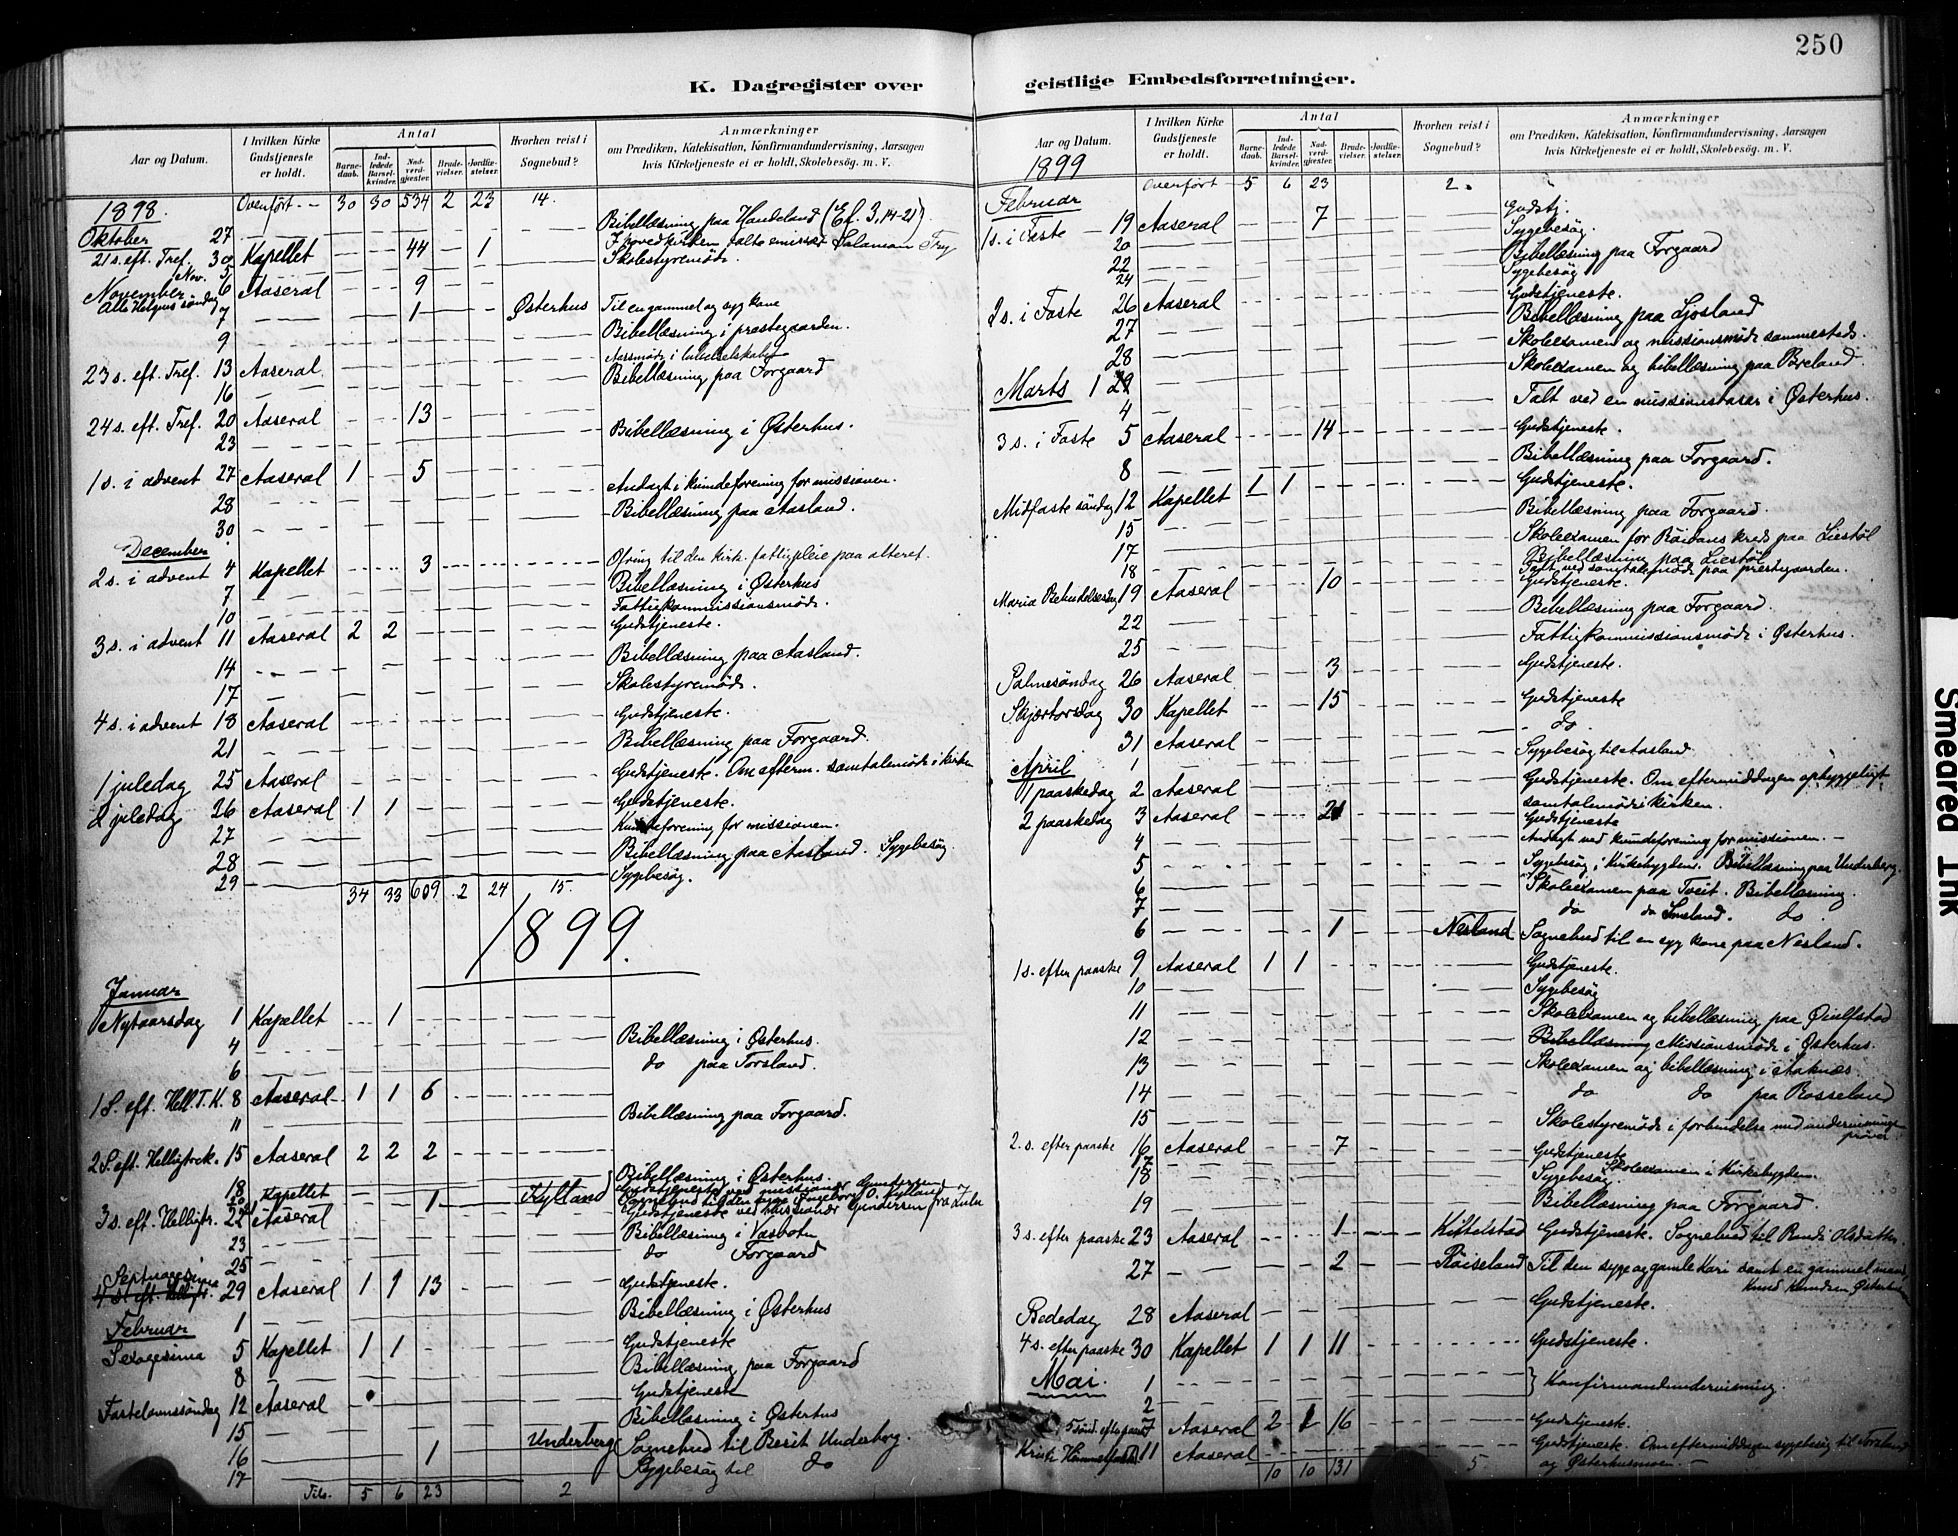 250
K. Dagregister over geistlige Embedsforretninger.
Aar og Datum. I hvilken Kirke Gudstjeneste er holdt. Antal Barnedaab. Indledede Barselkvinder. Nadverdgjester. Brudevielser. Jordfæstelser. Hvorhen reist i Sognebud? Anmærkninger om Prædiken, Katekisation, Konfirmandundervisning, Aarsagen hvis Kirketjeneste ei er holdt, Skolebesøg. m. V.
1898. Overført - - 30 30 534 2 23 14.
Oktober 27 Bibellæsning paa Handeland (Ef. 3, 14-21).
21 s. eft. Tref. 30 Kapellet 44 1 I hovedkirken talte emissær Salamon Try
Nov. 5 Skolestyremöde.
November 6 Aaseral 9
Alle Helgens söndag
7 1 Østerhus Til en gammel og syg kone
9 Bibellæsning i præstegaarden.
23 s. eft. Tref. 13 Aaseral.
16 Bibellæsning paa Forgaard
24 s. eft. Tref. 20 Aaseral 13
23 Bibellæsning i Østerhus.
1 s. i advent 27 Aaseral 1 5
28 Andagt i kvindeforening for missionen.
30 Bibellæsning paa Aasland.
December
2 s. i advent 4 Kapellet 3 Ofring til den kirk. fattigpleie paa alteret.
7 Bibellæsning i Østerhus
10 Fattigkommissionsmöde.
3 s. i advent 11 Aaseral 2 2 Gudstjeneste.
14 Bibellæsning paa Aasland.
17 Skolestyremöde.
4 s. i advent 18 Aaseral Gudstjeneste.
21 Bibellæsning paa Forgaard.
1 juledag 25 Aaseral Gudstjeneste. Om efterm. samtalemöde i kirken
2 juledag 26 Aaseral 1 1 Gudstjeneste.
27 Kvindeforening for missionen.
28 Bibellæsning paa Aasland. Sygebesög.
29 Sygebesög.
34 33 609 2 24 15.
1899.
Januar
Nytaarsdag 1 Kapellet 1
4 Bibellæsning i Østerhus.
6 do paa Forsland.
1 S. eft. Hell. T. K. 8 Aaseral 1 1 6
11 Bibellæsning paa Forgaard.
2 S. eft. Helligtrek. 15 Aaseral 2 2 2
18 Bibellæsning i Østerhus.
20 Kapellet Gudstjeneste ved missionær Gundersen
1 Kylland
3 s. eft. Helligtr. 22 Aaseral Gudstjeneste ved missionær Gundersen
23 Bibellæsning i Vasbotn
25 do Forgaard
Septuagesima
4 s. eft. Helligtr. 29 Aaseral 1 1 13 Gudstjeneste.
Februar 1 Bibellæsning i Østerhus
Sexagesima 5 Kapellet 1 1 Gudstjeneste
8 Bibellæsning paa Forgaard
Fastelavnssöndag 12 Aaseral Gudstjeneste
15 Bibellæsning i Østerhus
16 1 Underberg Sognebud til Berit Underberg.
17 Sygebesög til do
5 6 23 2
Aar og Datum. I hvilken Kirke Gudstjeneste er holdt. Antal Barnedaab. Indledede Barselkvinder. Nadverdgjester. Brudevielser. Jordfæstelser. Hvorhen reist i Sognebud? Anmærkninger om Prædiken, Katekisation, Konfirmandundervisning, Aarsagen hvis Kirketjeneste ei er holdt, Skolebesøg. m. V.
1899
Overført - 5 6 23 2.
Februar
1 s. i Faste 19 Aaseral 7 Gudstj.
20 Sygebesög.
22 Bibellæsning paa Forgaard
24 Sygebesög
2 s. i Faste 26 Aaseral Gudstjeneste.
27 Bibellæsning paa Ljosland
28 Skoleexamen og missionsmöde sammesteds.
Marts 1 Skoleexamen og bibellæsning paa Breland.
4 Talt ved en missionsbasar i Østerhus.
3 s. i Faste 5 Aaseral 14 Gudstjeneste.
8 Bibellæsning paa Forgaard.
Midfaste söndag 12 Kapellet 1 1 Gudstjeneste.
15 Bibellæsning paa Forgaard.
17 Skoleexamen for Röivans kreds paa Liestöl
Bibellæsning paa Liestöl
18 Talt ved samtalemöde paa præstegaarden.
Maria Bebudelsesdag 19 Aaseral 10 Gudstjeneste.
22 Bibellæsning paa Forgaard.
25 Fattigkommissionsmöde i Østerhus.
Palmesöndag 26 Aaseral 3 Gudstjeneste.
Skjærtorsdag 30 Kapellet 15 Gudstjeneste
31 Aaseral - do
April 1 Sygebesög til Aasland.
1 paaskedag 2 Aaseral Gudstjeneste. Om eftermiddagen opbyggeligt
samtalemöde i kirken.
2 paaskedag 3 Aaseral 21 Gudstjeneste
4 Andagt ved kvindeforening for missionen. -
5 Sygebesög i Kirkebygden. Bibellæsning paa Underberg.
6 Skoleexamen paa Tveit. Bibellæsning.
7 do do Smeland. do
6 1 Nesland Sognebud til en syg kone paa Nesland.
1 s. efter paaske 9 Aaseral 1 1 Gudstjeneste.
10 Sygebesög
11 Skoleexamen og bibellæsning paa
12 Bibellæsning Missionsmöde i Østerhus.
13 Skoleexamen og bibellæsning i Aaknæs.
14 do do paa Rosseland
15 Skolestyremöde i forbindelse med
2. s. efter paaske 16 Aaseral 7 Gudstjeneste
17 Skoleexamen i Kirkebygden.
18 Sygebesög.
19 Bibellæsning paa Forgaard.
3 s. efter paaske 23 Aaseral 1 Kittelstad Gudstjeneste. Sognebud til
27 2 Röiseland Til den syge og gamle Kari samt en gammel mand,
Knud Knudsen Østerhus
Bededag 28 Aaseral Gudstjeneste.
4 s. efter paaske 30 Kapellet 1 1 11 Gudstjeneste.
Mai. 1 } Konfirmandundervisning.
2
5 sönd. efter paaske 7 Aaseral 2 1 16 Gudstjeneste.
Kristi Himmelfartsd. 11 Aaseral Gudstjeneste. Om eftermiddagen sygebesög til Forsland
og Østerhusmoen. -
10 10 131 5
Smeared Ink